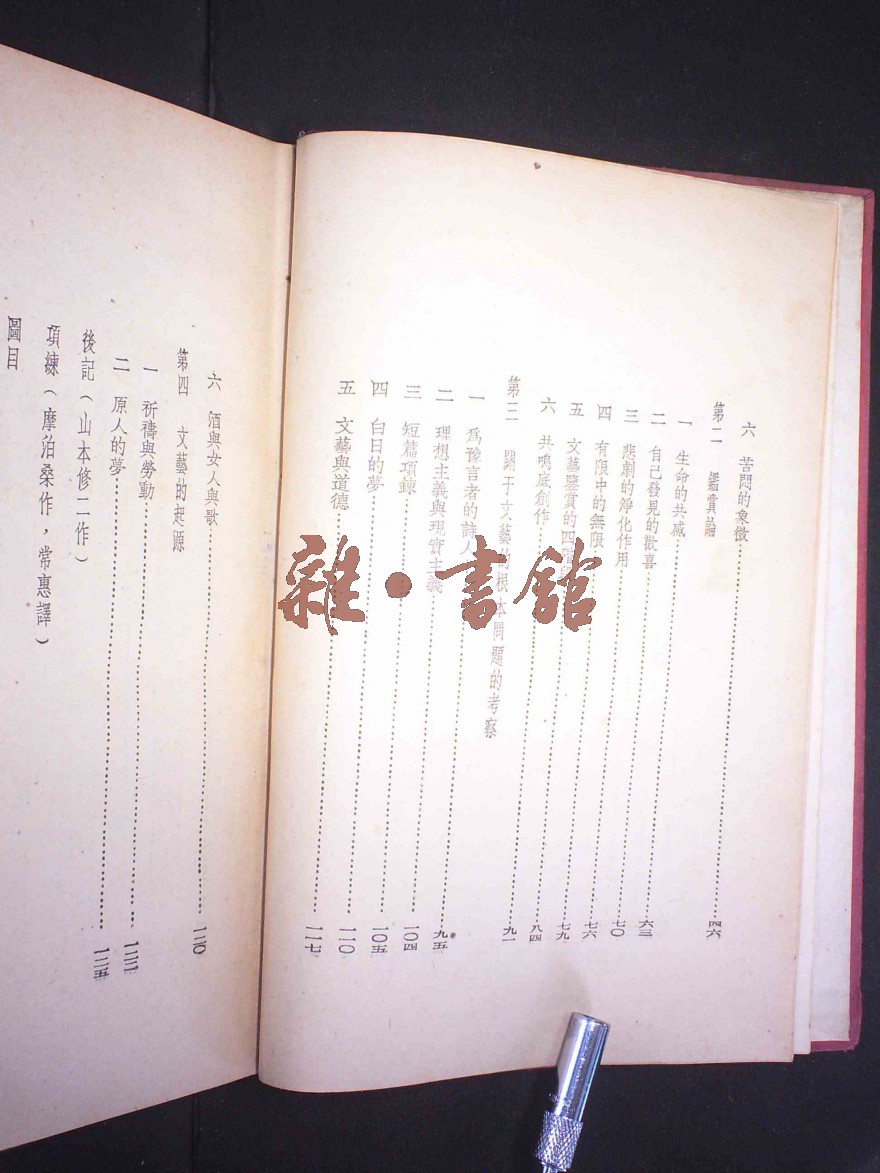 六 苦悶的象徵……四六
第二 鑑賞論
一 生命的共感……六三
二 自己發見的歡喜……七〇
三 悲劇的淨化作用……七六
四 有限中的無限……七九
五 文藝鑒賞的四……八四
六 共鳴底創作……九一
第三 關于文藝的根本問題的考察
一 爲豫言者的詩人……九五
二 理想主義與現實主義……一〇四
三 短篇項鍊……一〇五
四 白日的夢……一一〇
五 文藝與道德……一一七
六 酒與女人與歌……一二〇
第四 文藝的起源
一 祈禱與勞動……一二三
二 原人的夢……一二五
後記(山本修二作)
項練(摩泊桑作,常惠譯)
圖目
雜·書館